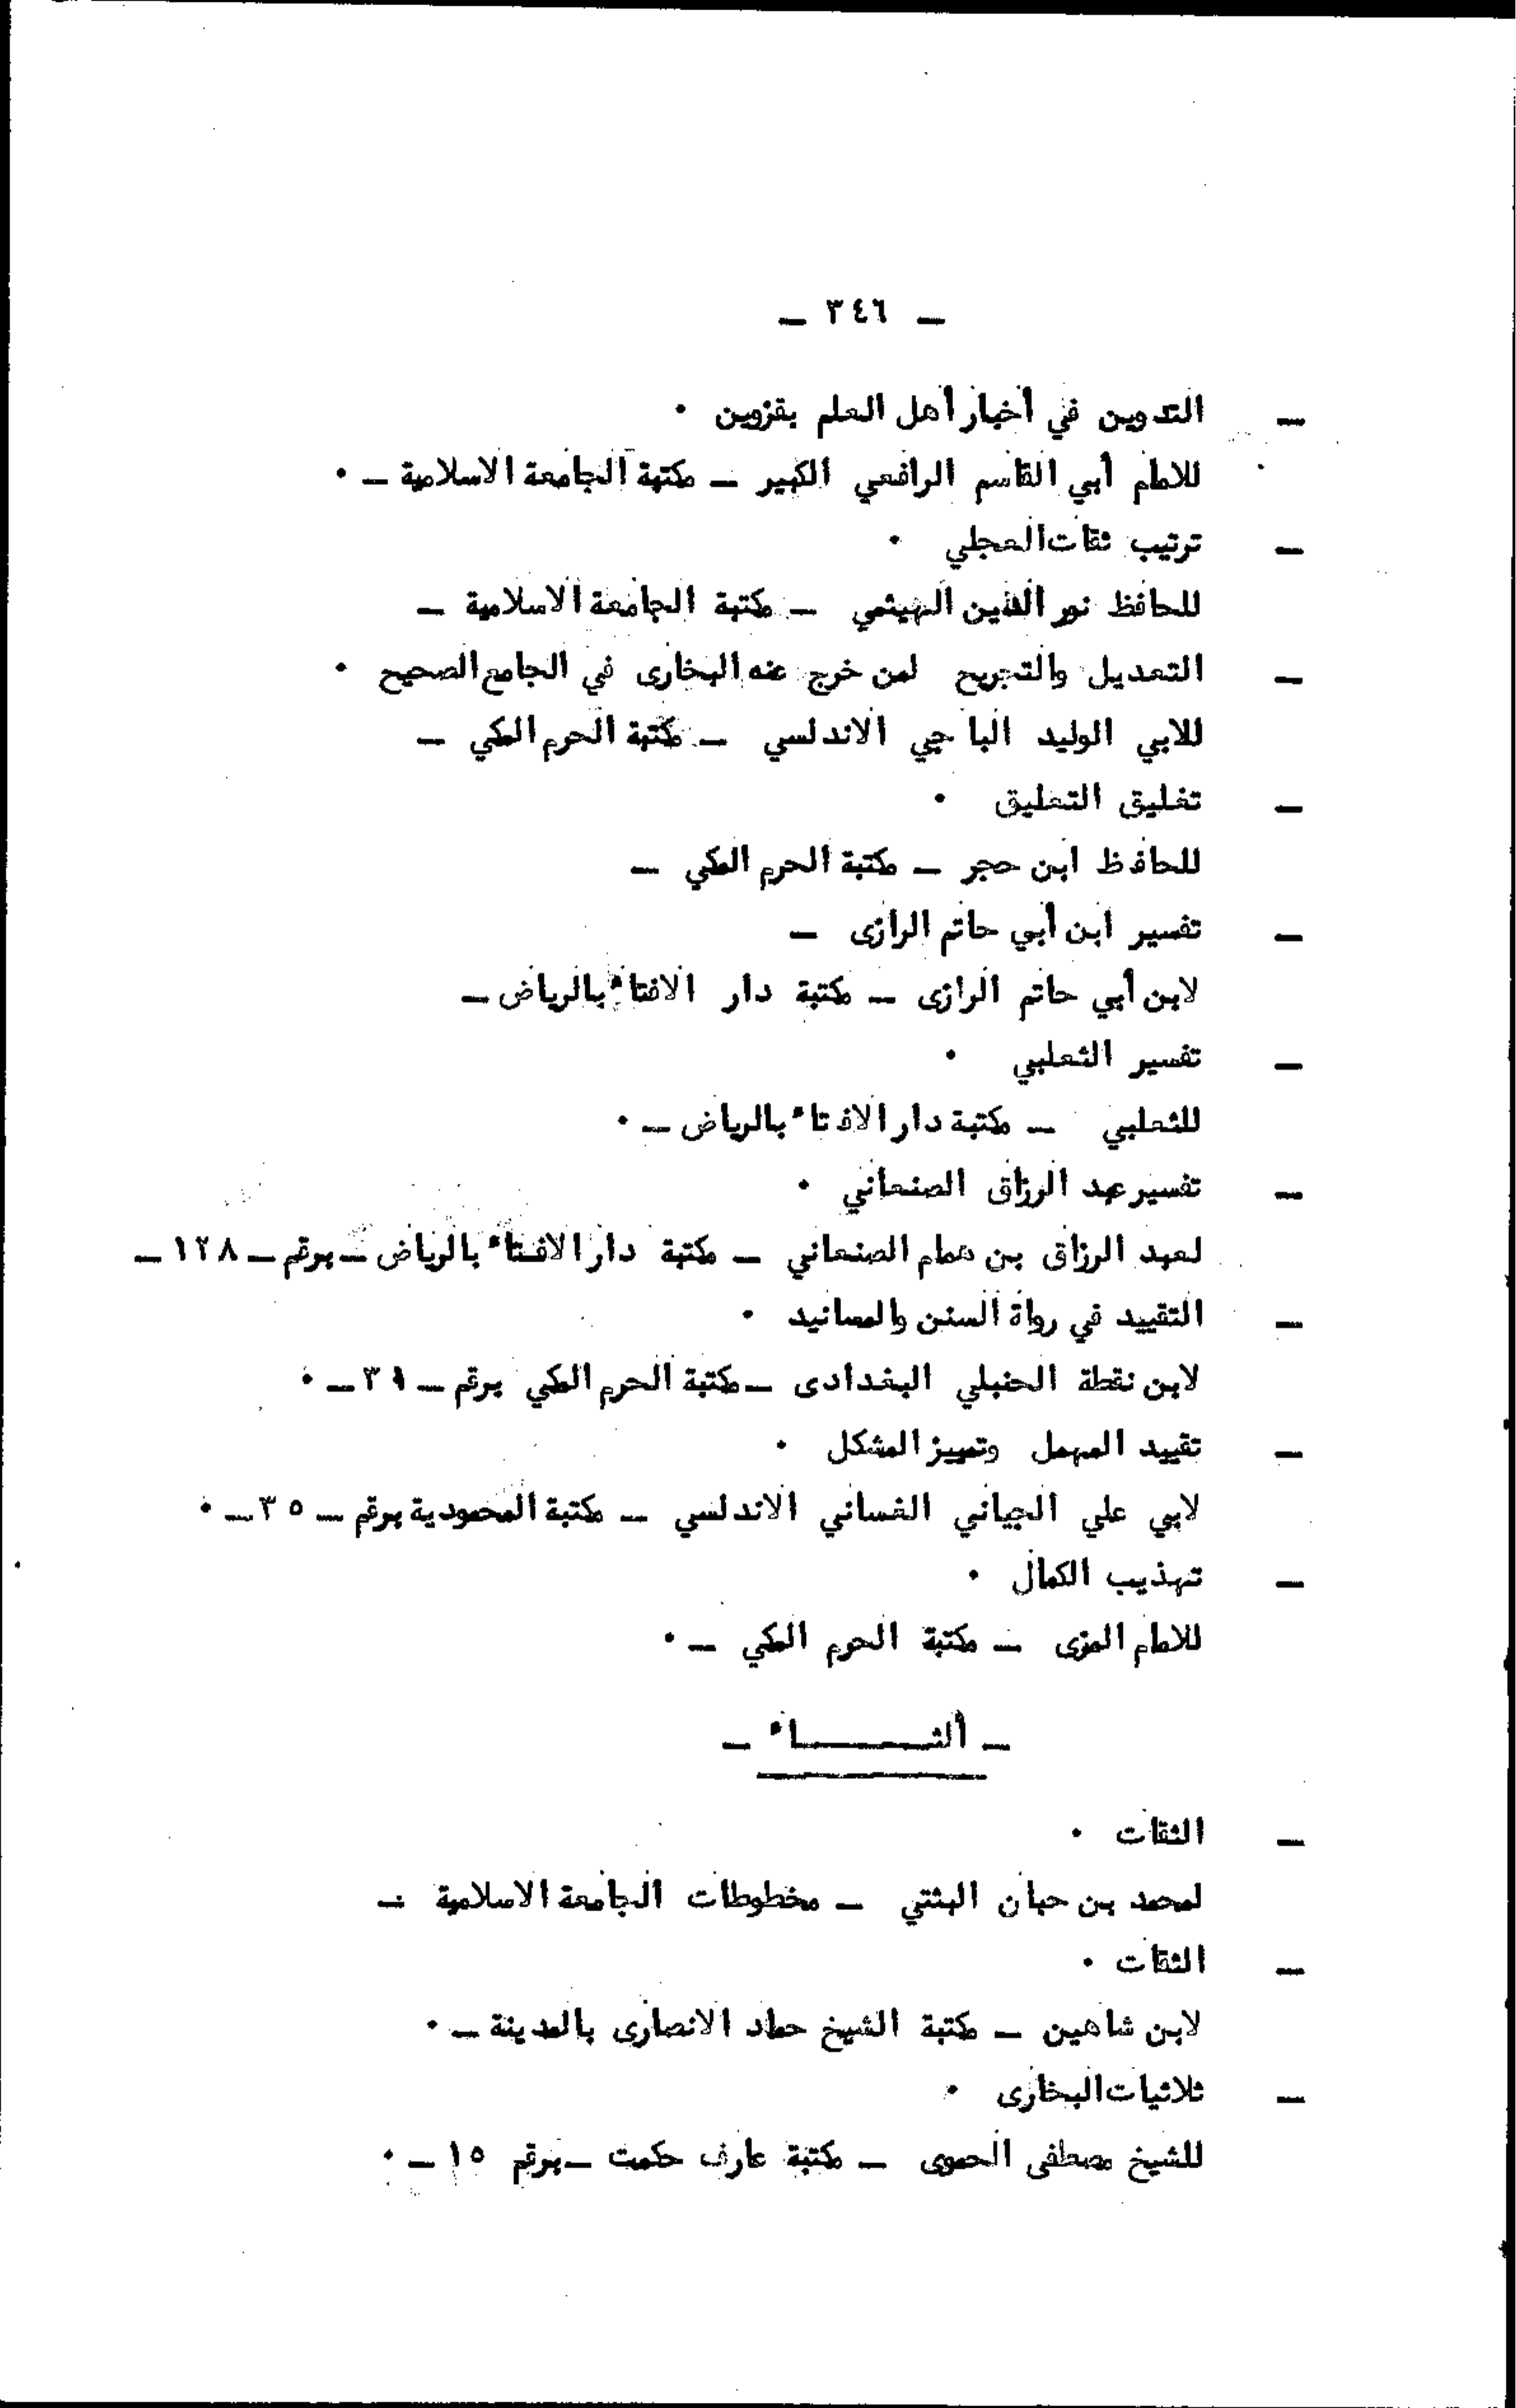 ـ ٣٤٦ ـ
ـ التدوين في أخبار أهل العلم بقزوين ٠
للامام أبي القاسم الرافعي الكبير ـ مكتبة الجامعة الاسلامية ـ ٠
ـ ترتيب ثقات العجلي ٠
للحافظ نور الدين الهيثمي ـ مكتبة الجامعة الاسلامية ـ
ـ التعديل والتجريح لمن خرج عنه البخارى في الجامع الصحيح ٠
للابي الوليد الباجي الاندلسي ـ مكتبة الحرم المكي ـ
ـ تغليق التعليق ٠
للحافظ ابن حجر ـ مكتبة الحرم المكي ـ
ـ تفسير ابن أبي حاتم الرازى ـ
لابن أبي حاتم الرازى ـ مكتبة دار الافتاء بالرياض ـ
ـ تفسير الثعلبي ٠
للثعلبي ـ مكتبة دار الافتاء بالرياض ـ ٠
ـ تفسير عبد الرزاق الصنعاني ٠
لعبد الرزاق بن همام الصنعاني ـ مكتبة دار الافتاء بالرياض ـ برقم ـ ١٢٨ ـ
ـ التقييد في رواة السنن والمسانيد ٠
لابن نقطة الحنبلي البغدادى ـ مكتبة الحرم المكي برقم ـ ٣٩ ـ ٠
ـ تقييد المهمل وتمييز المشكل ٠
لابي علي الجياني الغساني الاندلسي ـ مكتبة المحمودية برقم ـ ٣٥ ـ ٠
ـ تهذيب الكمال ٠
للامام المزى ـ مكتبة الحرم المكي ـ ٠
ـ الثـــــاء ـ
ـ الثقات ٠
لمحمد بن حبان البثتي ـ مخطوطات الجامعة الاسلامية ـ
ـ الثقات ٠
لابن شاهين ـ مكتبة الشيخ حماد الانصارى بالمدينة ـ ٠
ـ ثلاثيات البخارى ٠
للشيخ مصطفى الحموى ـ مكتبة عارف حكمت ـ برقم ١٥ ـ ٠